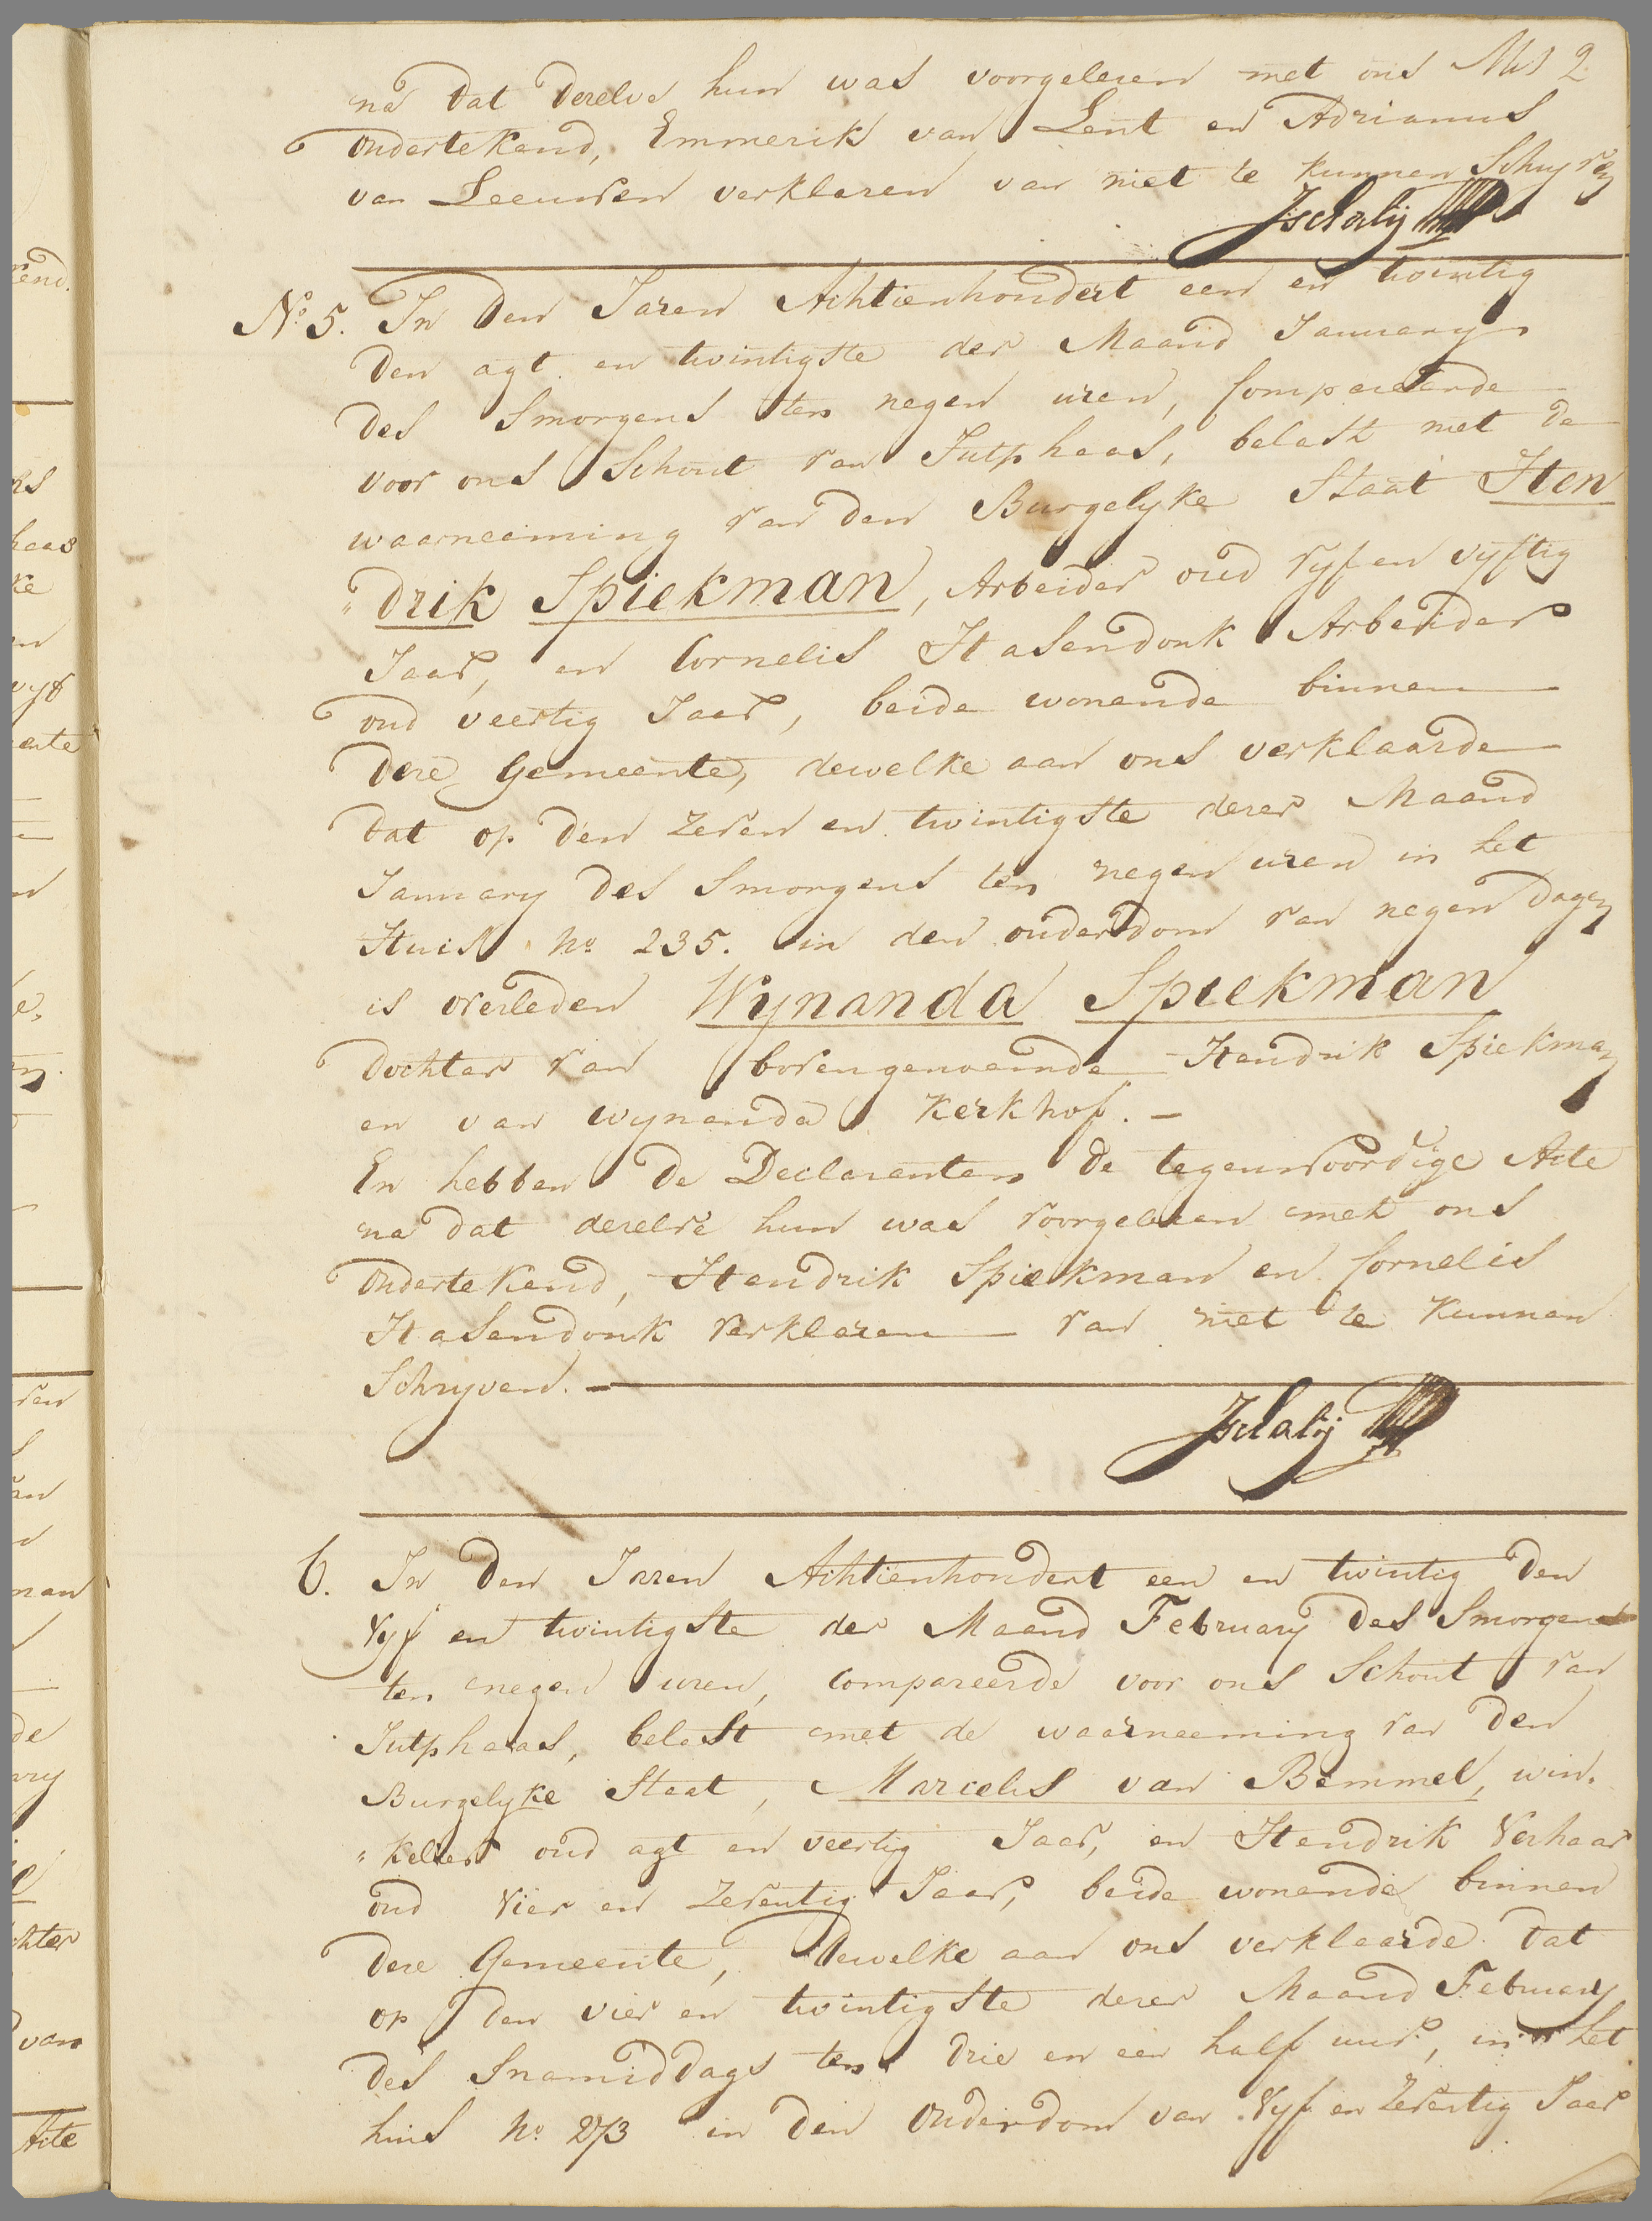 na dat deselve hun was voorgelesen met ons 2
ondertekend, Emmerik van Lent en Adrianus
van Leeuwen verklaren van niet te kunnen Schryven
N:o 5. In den Jaren Achtienhondert een en twintig
den agt en twintigste der Maand January
des Smorgens ten negen uren, Compareerde
voor ons Schout van Jutphaas, belast met de
waarneeming van den Burgelyke Staat Hen
"drik Spiekman, Arbeider oud vyf en vyftig
Jaar, en Cornelis Hasendonk Arbeider
oud veertig Jaar, beide wonende binnen
dese Gemeente, dewelke aan ons verklaarde
dat op den zeven en twintigste deser Maand
January des Smorgens ten negen uren in het
Huis No 235. in den ouderdom van negen dagen
is overleden Wynanda Spiekman
dochter van bovengenoemde Hendrik Spiekman
en van Wynanda Kerkhof. -
En hebben de Declaranten de tegenwoordige Acte
na dat deselve hun was voorgelesen met ons
ondertekend, Hendrik Spiekman en Cornelis
Hasendonk verklaren van niet te kunnen
Schryven. -
6. In den Jaren Achtienhondert een en twintig den
Vyf en twintigste der Maand February des Smorgens
ten negen uren, compareerde voor ons Schout van
Jutphaas, belast met de waarneeming van den
Burgelyke Staat, Marcelis van Bemmel, win-
"kelier oud agt en veertig Jaar, en Hendrik Verhaar
oud Vier en Zeventig Jaar, beide wonende binnen
dese Gemeente, dewelke aan ons verklaarde dat
op den vier en twintigste deser Maand February
des Snamiddags ten drie en een half uur, in het
huis No 273 in den Ouderdom van Vyf en Zeventig Jaar
rend.
haas
ke
vyf
ente
ven
man
de
chter
van
Acte